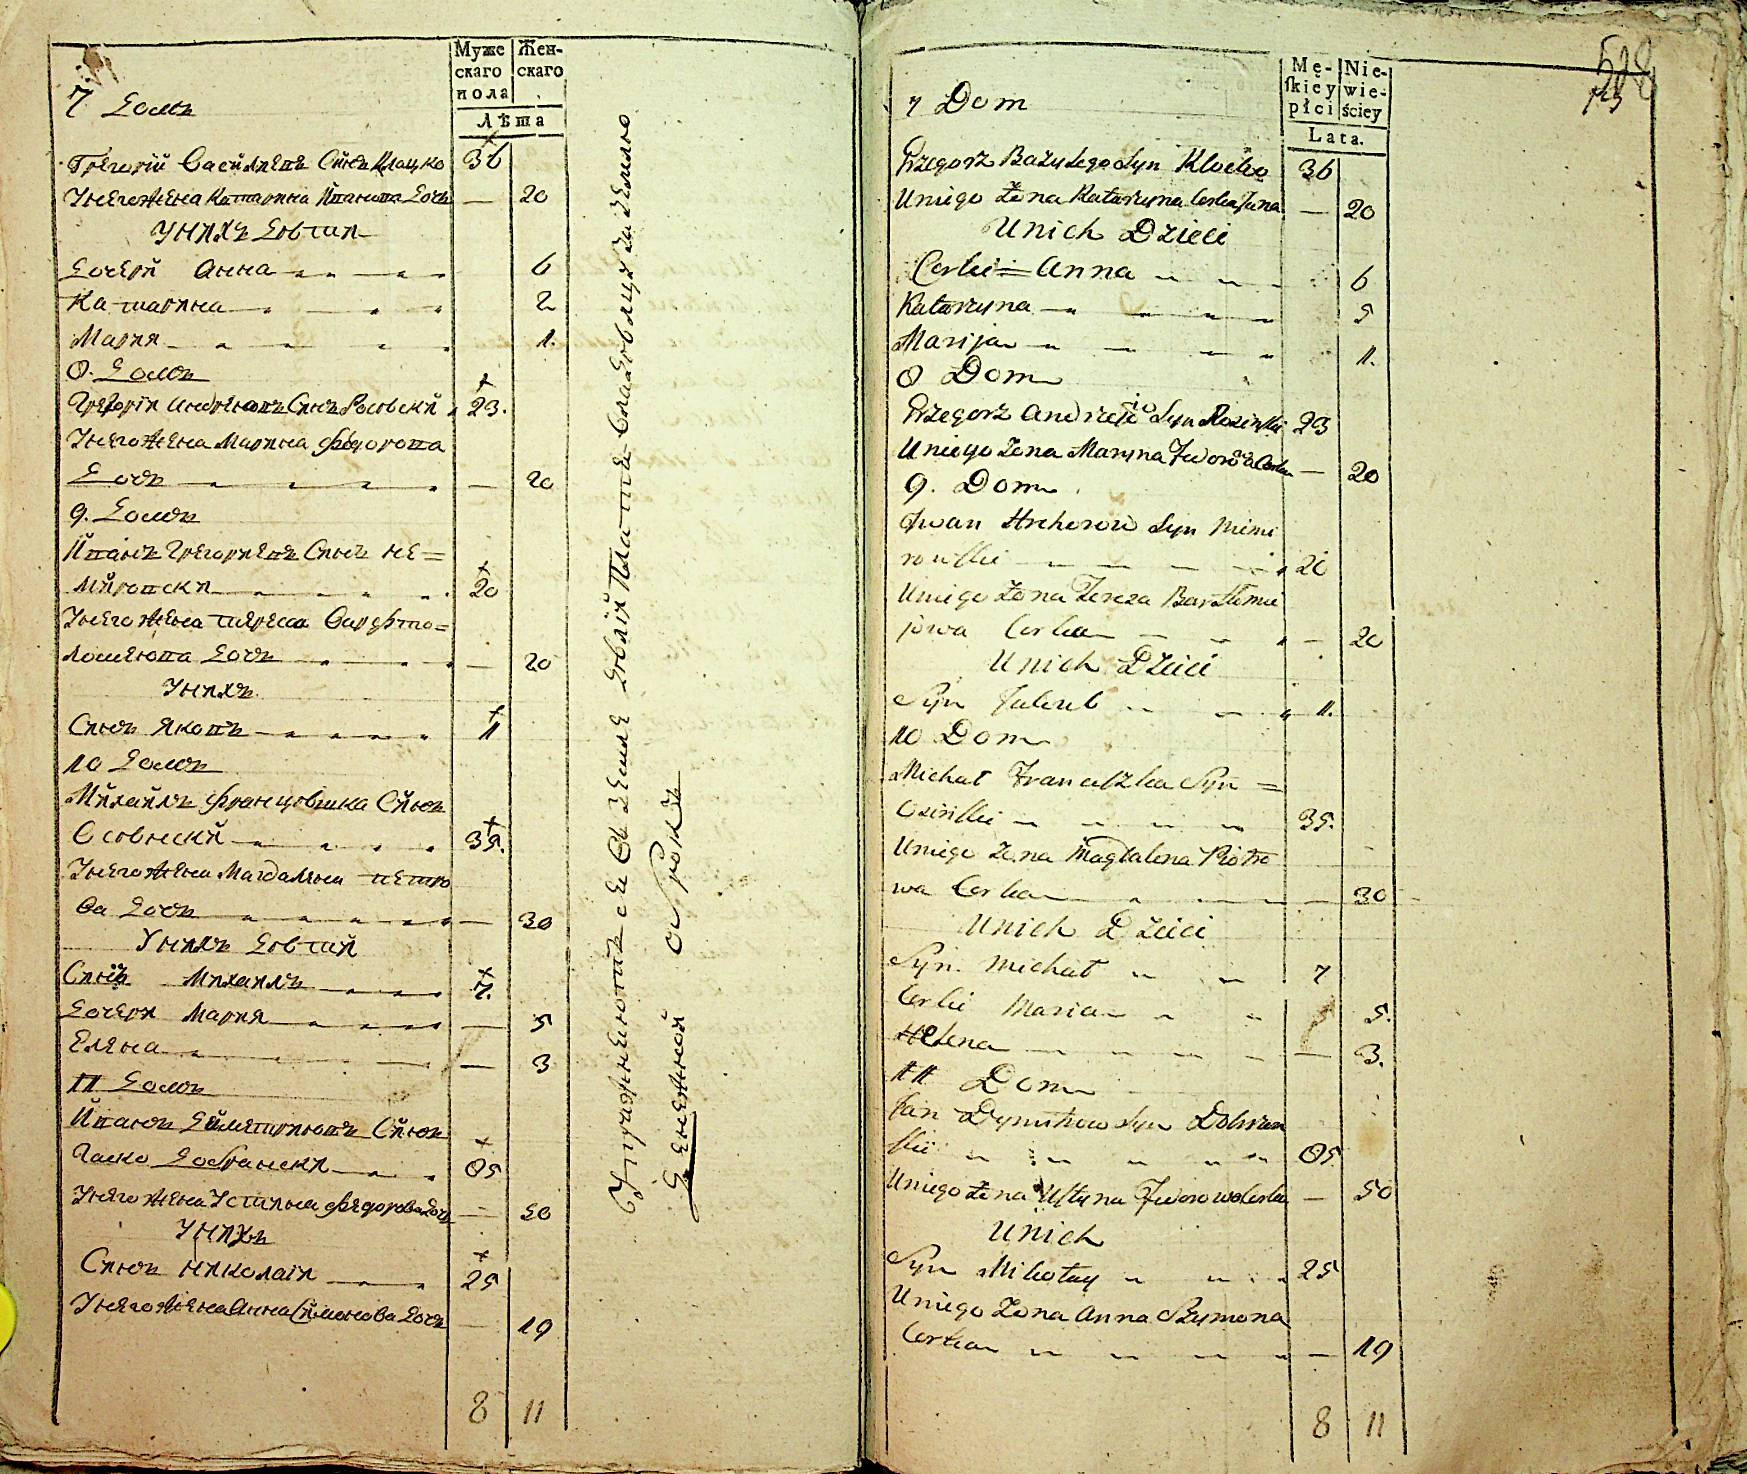 Муже
скаго
пола
Жен-
скаго
Лѣта
7 Домъ
Григорій Василиевъ Сынъ Клацко 36
Унего Жена Катарина Иванова Дочь — 20
Унихъ Довтии
Дочери Анна 6
Катарина 2
Мария 1.
8. Домъ
Григорій Андреювъ Сынъ Росовскій 23.
Унего Жена Марина Федорова
Дочь — 20
9. Домъ
Иванъ Григориевъ Сынъ Не=
мировски 20
Унего Жена Тереса Варфто=
ломеюва Дочь — 20
Унихъ
Сынъ Яковъ 1
10 Домъ
Михайлъ Францовшка Сынъ
Осовнский 35.
Унего Жена Магдалена Петро
ва Дочь — 30
Унихъ Довтий
Сынъ Михаилъ 7.
Дочери Мария — 5
Елена — 3
11 Домъ
Иванъ Деиметриювъ Сынъ
Гаско Добрански 85
Унего Жена Устина Федорова Дочь — 50
Унихъ
Сынъ Николаій 25
Унего Жена Анна Симонова Дочь — 19
8 11
Упражниютъ
Денежной Оброкъ
Mę-
skiey
płci
Nie-
wie-
ściey
Lata.
7 Dom
Grzegorz Bazylego Syn Klocko 36
Uniego Żona Katarzyna Corka Jana — 20
Unich Dzieci
Corki = Anna 6
Katarzyna 5
Marija 1.
8 Dom
Grzegorz Andrzeja Syn Rosinski 23
Uniego Żona Maryna Fedorowa Corka — 20
9. Dom
Jwan Hrehorow Syn Niemi
rowski 20
Uniego Żona Tereza Bartłomie
jowa Corka — 20
Unich Dzieci
Syn Jakub 1.
10 Dom
Michał Franciszka Syn =
Osinski 35.
Uniego Żona Magdalena Piotro
wa Corka — 30
Unich Dzieci
Syn. Michał 7
Corki Maria 5.
Helena — 3.
11 Dom
Jan Dymitrow Syn Dobran
ski 85
Uniego Żona Ustyna Fedorowa Corka — 50
Unich
Syn Mikołay 25
Uniego Żona Anna Szymona
Corka — 19
8 11